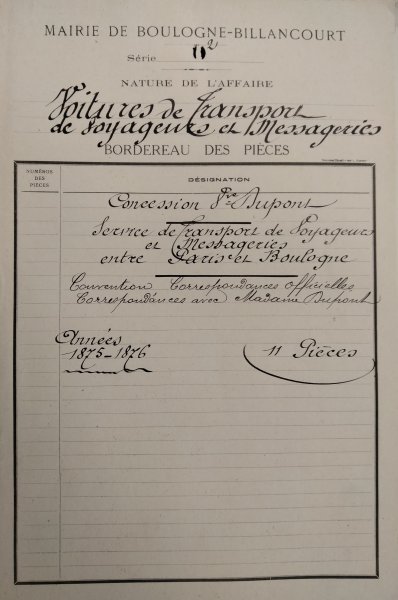 MAIRIE DE BOULOGNE-BILLANCOURT
Série D²
NATURE DE L'AFFAIRE
Voitures de Transport
de Voyageurs et Messageries
BORDEREAU DES PIÈCES
NUMÉROS DES PIÈCES
DÉSIGNATION
Concession Vve Dupont
Service de Transport de Voyageurs
et Messageries
entre Paris et Boulogne
Convention Correspondances officielles
Correspondances avec Madame Dupont
Années
1875-1876
11 Pièces